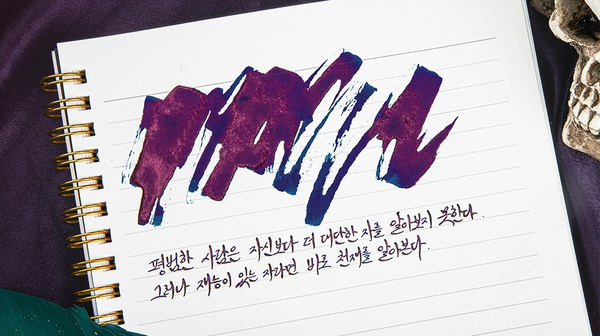 평범한 사람은 자신보다 더 대단한 자를 알아보지 못한다.
그러나 재능이 있는 자라면 바로 천재를 알아본다.